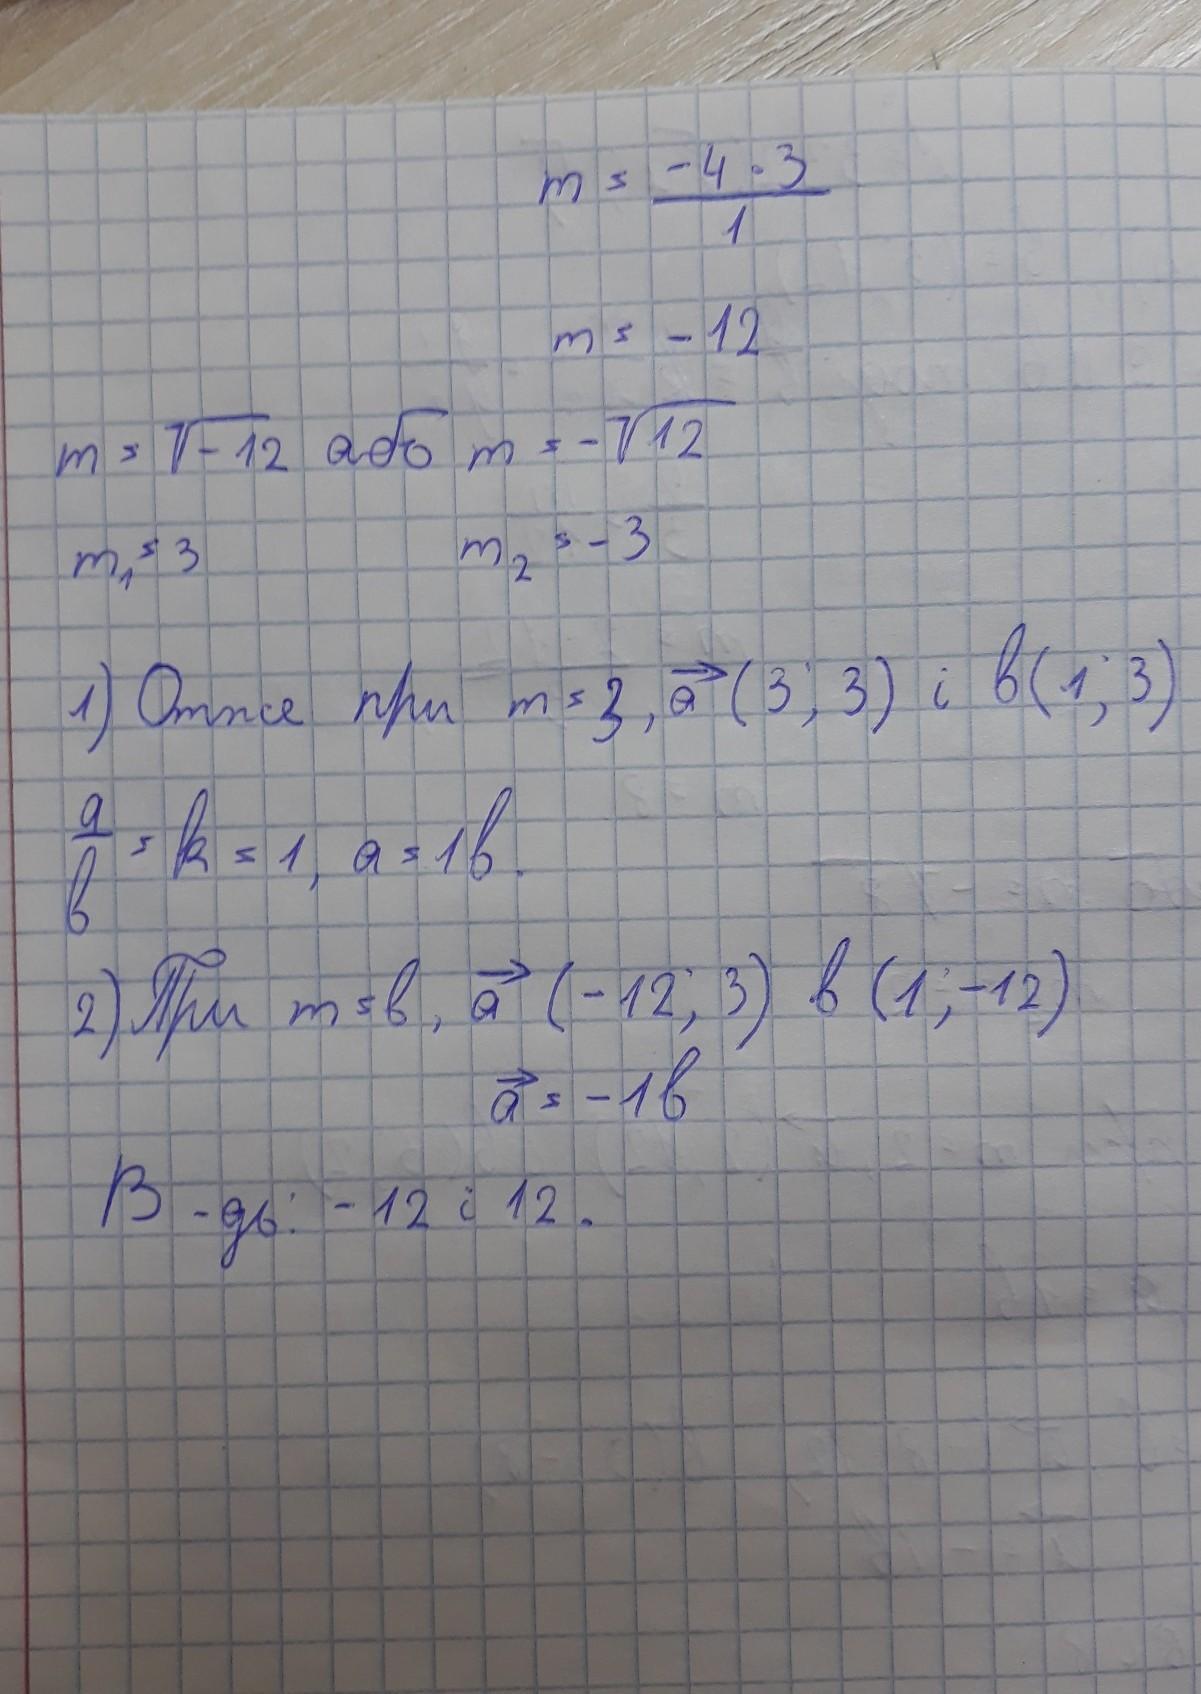 m = -4 · 3 / 1
m = -12
m = √-12 або m = -√12
m₁ = 3 m₂ = -3
1) Отже при m = 3, a⃗ (3; 3) і в (1; 3)
a/в = k = 1, a = 1в.
2) При m = в, a⃗ (-12; 3) в (1; -12)
a⃗ = -1в
В-дь: -12 і 12.